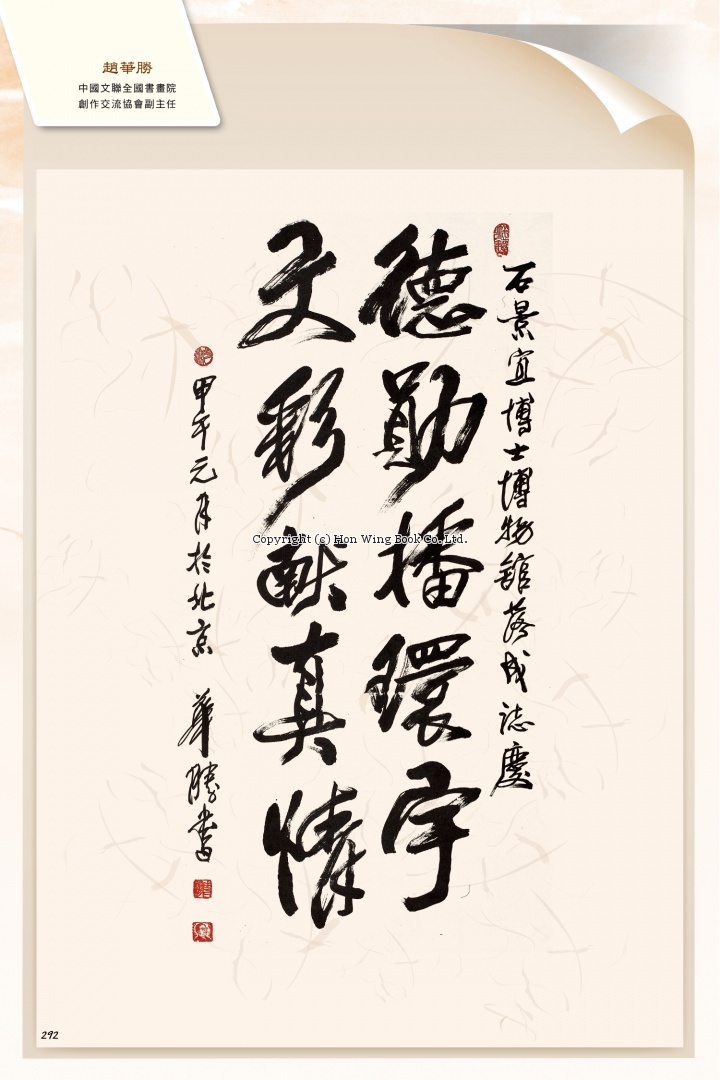 趙華勝
中國文聯全國書畫院
創作交流協會副主任
石景宜博士博物館落成誌慶
德勛播環宇
文彩献真情
甲午元月於北京 華勝書
Copyright (c) Hon Wing Book Co., Ltd.
292